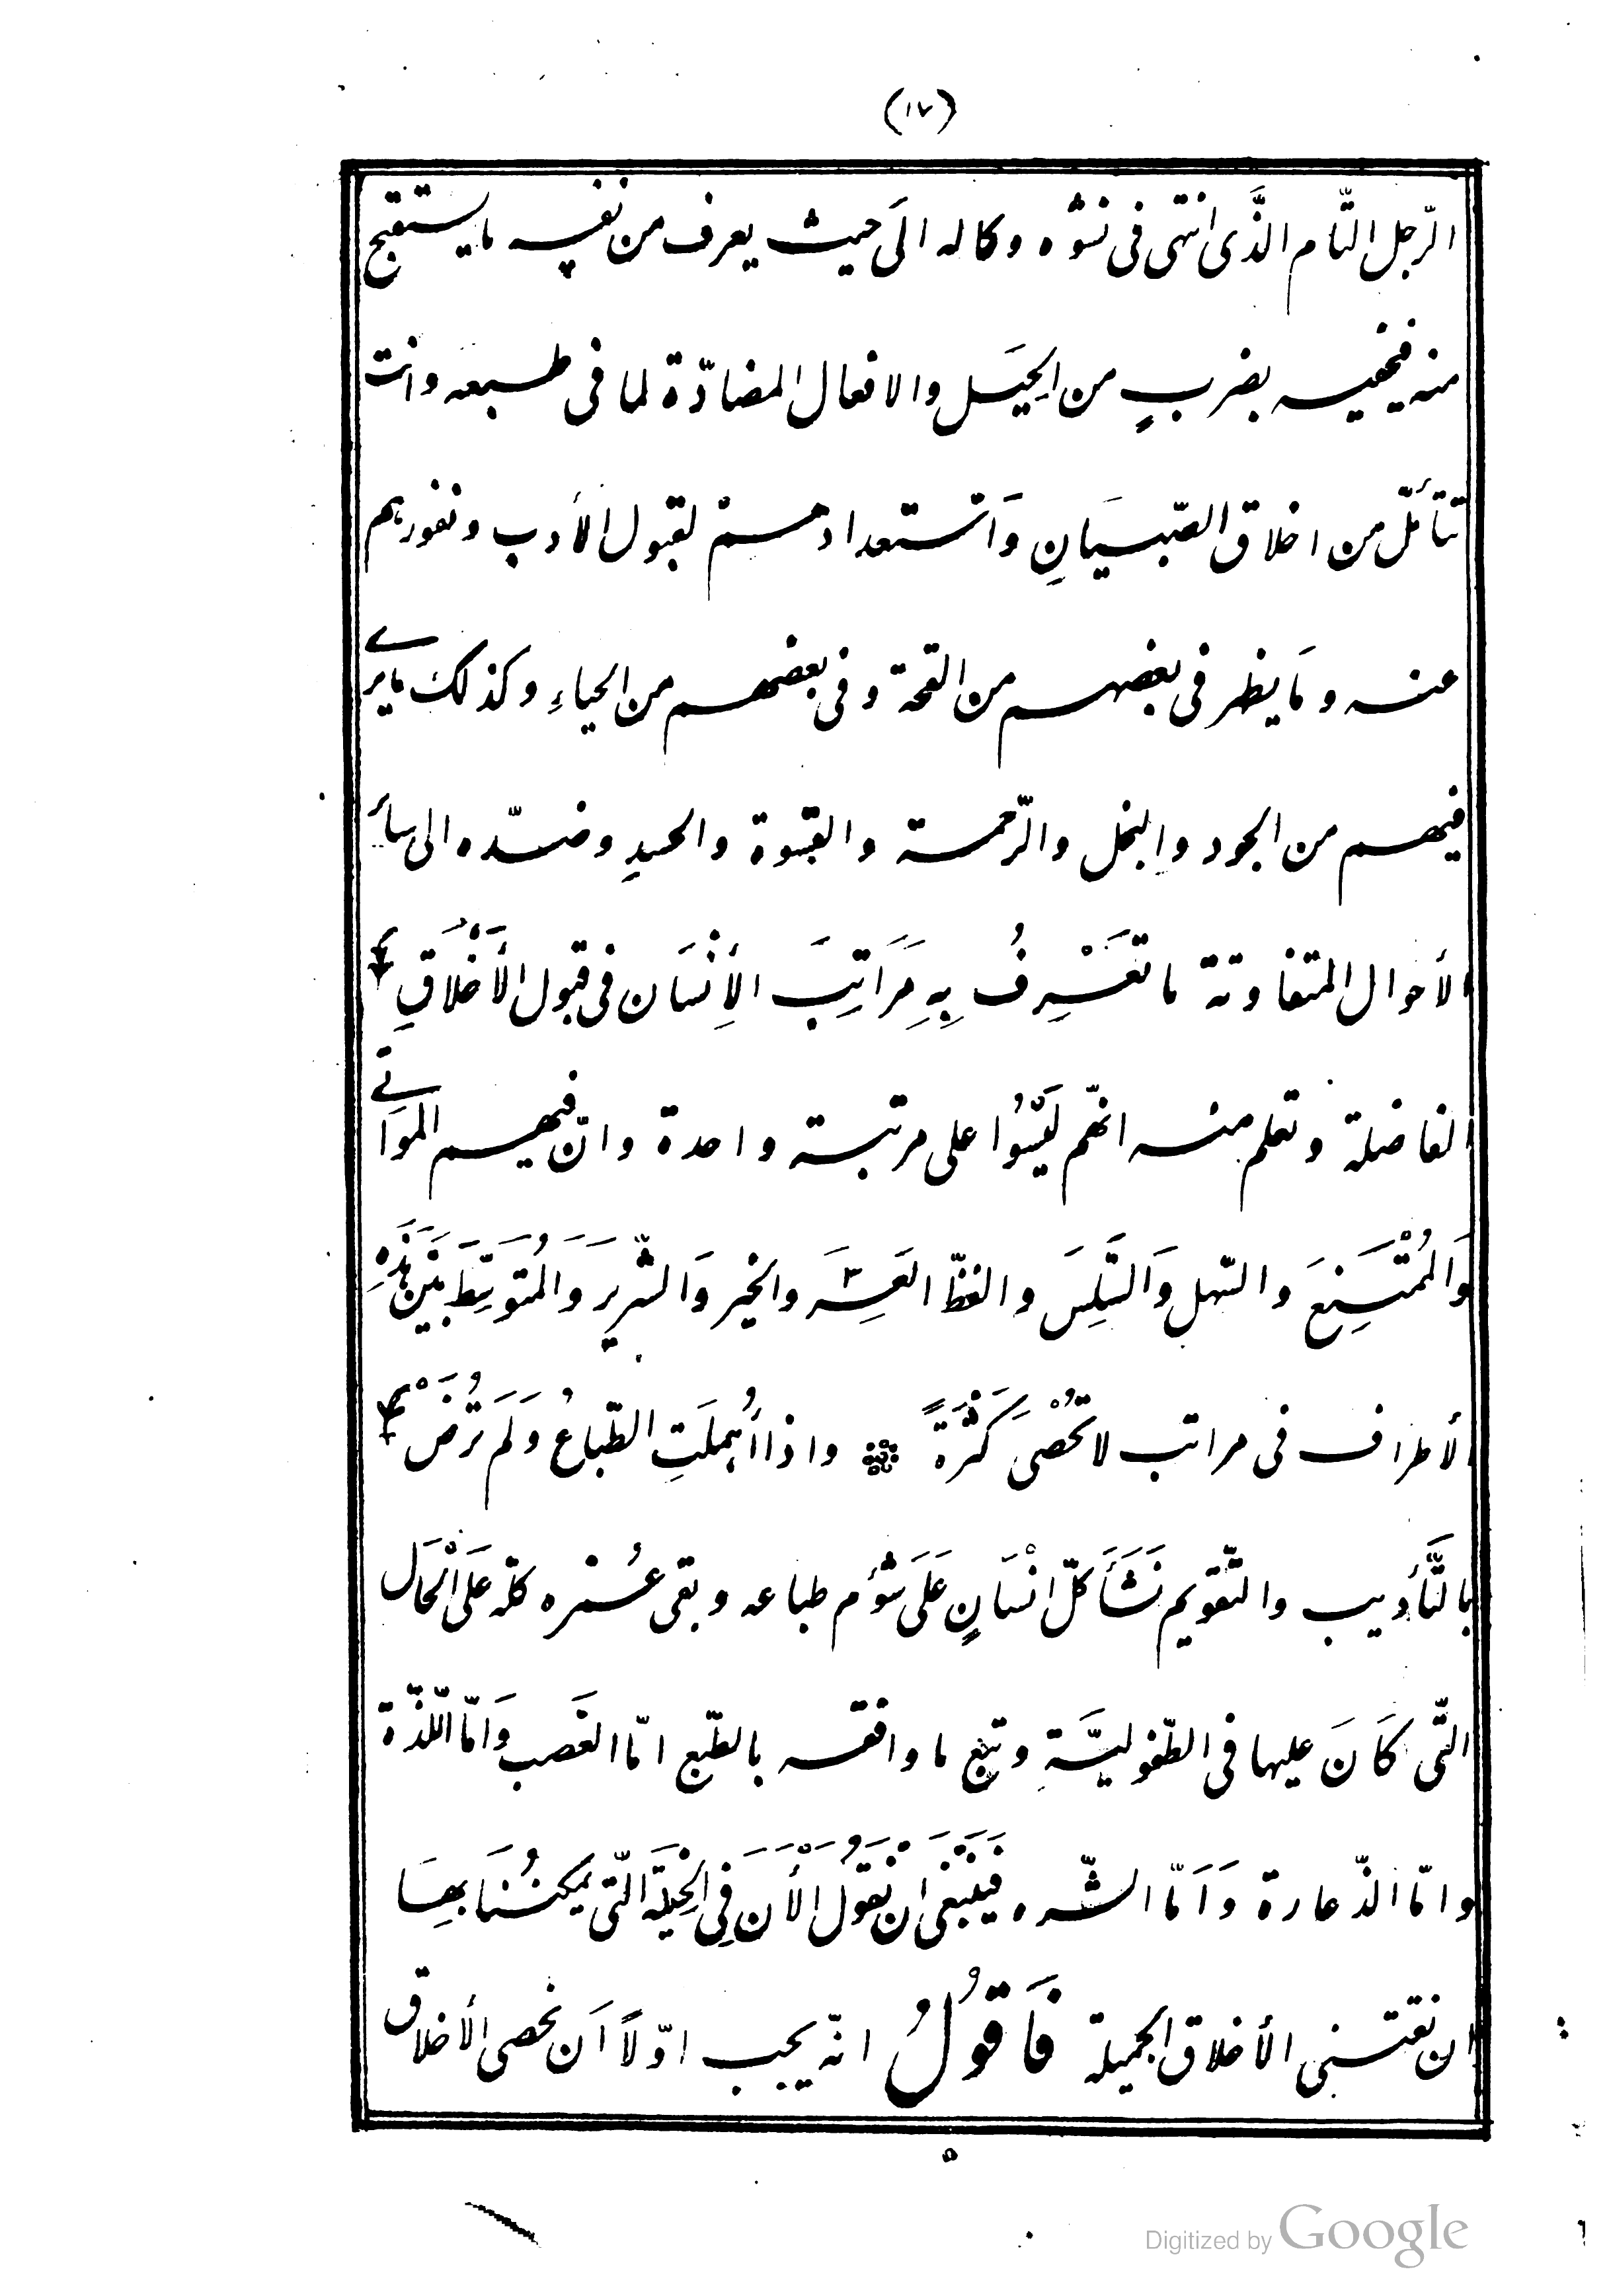 (١٧)
الرّجل التّام الذَّى انتهى فى نشوّه وكماله الَى حيث يعرف من نفسه ما يستقبح
منه فيخفيه بضربٍ من الحِيَل والافعال المضادّة لما فى طبعه وانت
تتأمّل من اخلاق الصّبيَانِ وَاستعدادهمْ لقبول الأدب ونفورهم
عنه ومَا يظهر فى بعضهم من القحة وفى بعضهم من الحياءِ وكذلك مايرى
فيهم من الجود والبخل والرّحمة والقسوة والحسدِ وضدّه الى سائر
الأحوال المتفاوتة ما تَعْرِفُ بِهِ مَرَاتِبَ الاِنْسَان فى قبول الأَخْلَاقِ
الفاضلة وتعلم منه انهّم لَيْسُوا على مرتبة واحدة وانّ فيهم المواتى
وَالمُمْتَنِعَ والسّهل وَالسَّلِسَ والفظّ العَسِرَ والخير وَالشّرير وَالمُتَوَسِّطَ بَيْنَ هَذِهِ
الأطراف فى مراتب لا تُحْصَى كَثْرَةً واذا أُهمِلَتِ الطّباعُ وَلَم تُرَضْ
بالتَّأديب والتّقويم نَشَأَ كلّ انْسَانٍ عَلَى سُؤم طباعه وبقى عُمْره كلّه عَلَى الْحَال
التَّى كَانَ عليها فى الطّفوليَّةِ وتبع ما وافقه بالطّبع امّا الغَضب وَامّا اللّذّة
وامّا الذّعارة وَاَمّا الشّره فَيَنْبَغى ان نَقُولَ الْأَنَ فِى الحِيلَةِ التّى يمكنُنَا بِهِا
ان نقتنى الأخلاق الجميلة فَاَقوُلُ انّه يجب اوّلاً اَن نحصى الأخلاق
٥
Digitized by Google